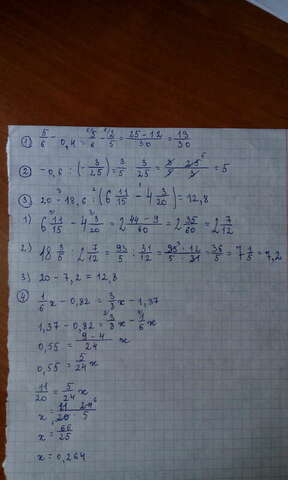 ① 5/6 - 0,4 = 5/6 - 2/5 = 25-12/30 = 13/30
② -0,6 : (-3/25) = 3/5 · 3/25 = 3/5 · 25/3 = 5
③ 20 - 18,6 : (6 11/15 - 4 3/20) = 12,8
1) 6 11/15 - 4 3/20 = 2 44-9/60 = 2 35/60 = 2 7/12
2) 18 3/5 : 2 7/12 = 93/5 : 31/12 = 93·12/5·31 = 36/5 = 7 1/5 = 7,2
3) 20 - 7,2 = 12,8
④ 1/6 x - 0,82 = 3/8 x - 1,37
1,37 - 0,82 = 3/8 x - 1/6 x
0,55 = 9-4/24 x
0,55 = 5/24 x
11/20 = 5/24 x
x = 11·24/20·5
x = 66/25
x = 0,264